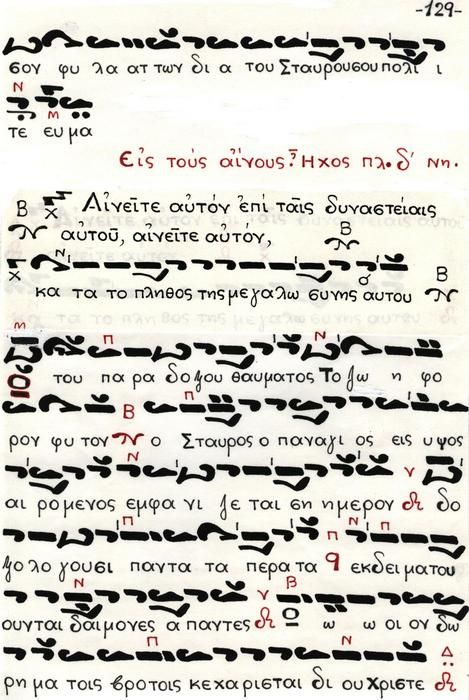 -129-
σου φυ λα ατ των δι α του Σταυρουσουπολι ι
τε ευ μα
Εἰς τοὺς αἴνους Ἦχος πλ. δ΄ Νη.
Αἰνεῖτε αὐτόν ἐπί ταῖς δυναστείαις
αὐτοῦ, αἰνεῖτε αὐτόν,
κα τα το πληθος της μεγαλω συνης αυτου
του πα ρα δοξου θαυματος Το ζω η φο
ρον φυ τον ο Σταυρος ο παναγι ος εις υψος
αι ρομενος εμφα νι ζε ται ση ημερον δο
ξολογουσι παντα τα περατα εκδειματου
ουνται δαιμονες α παντες ω ω οι ον δω
ρημα τοις βροτοις κεχαρισται δι ου Χριστε